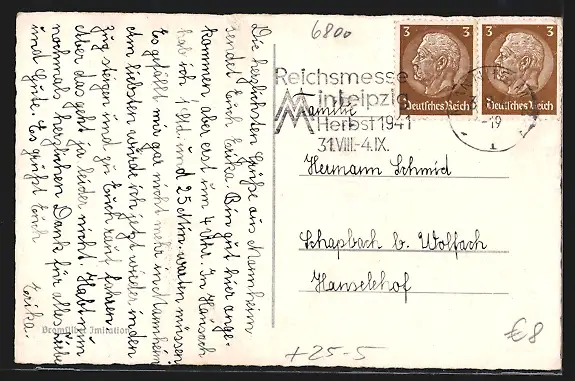 Die herzlichsten Grüße aus Mannheim
sendet Euch Erika. Bin gut hier ange-
kommen, aber erst um 4 Uhr. In Hausach
hab ich 1 Std und 25 Min. warten müssen
Es gefällt mir gar nicht mehr in Mannheim
Am liebsten würde ich jetzt wieder in den
Zug steigen und zu Euch rauf fahren.
Aber das geht ja leider nicht. Habt nun
nochmals herzlichen Dank für alles Liebe
und Gute. Es grüßt Euch
Erika.
Bromsilber Imitation
6800
3 3
Deutsches Reich
3 3
Deutsches Reich
Reichsmesse
in Leipzig
Herbst 1941
31.VIII.-4.IX.
-19
1
Familie
Hermann Schmid
Schapbach b. Wolfach
Hanselehof
€8
+25-5